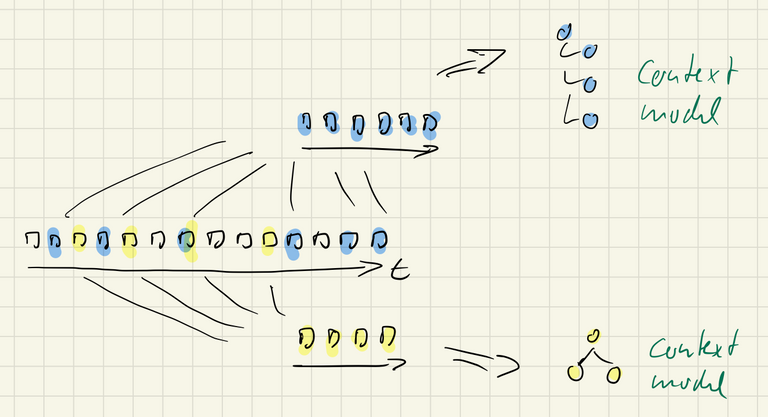 Context
model
t
Context
model